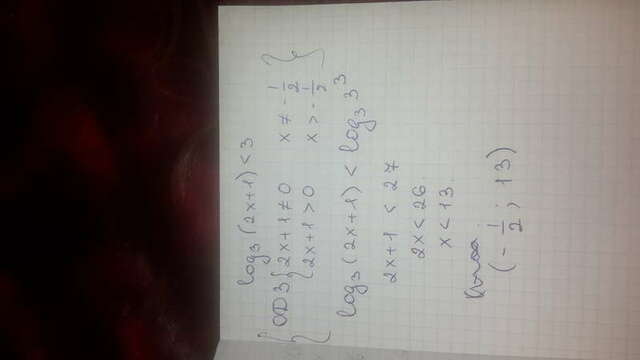 log₃(2x+1) < 3
ОДЗ { 2x+1 ≠ 0 x ≠ -1/2
2x+1 > 0 x > -1/2 }
log₃(2x+1) < log₃ 3³
2x+1 < 27
2x < 26
x < 13
(-1/2; 13)